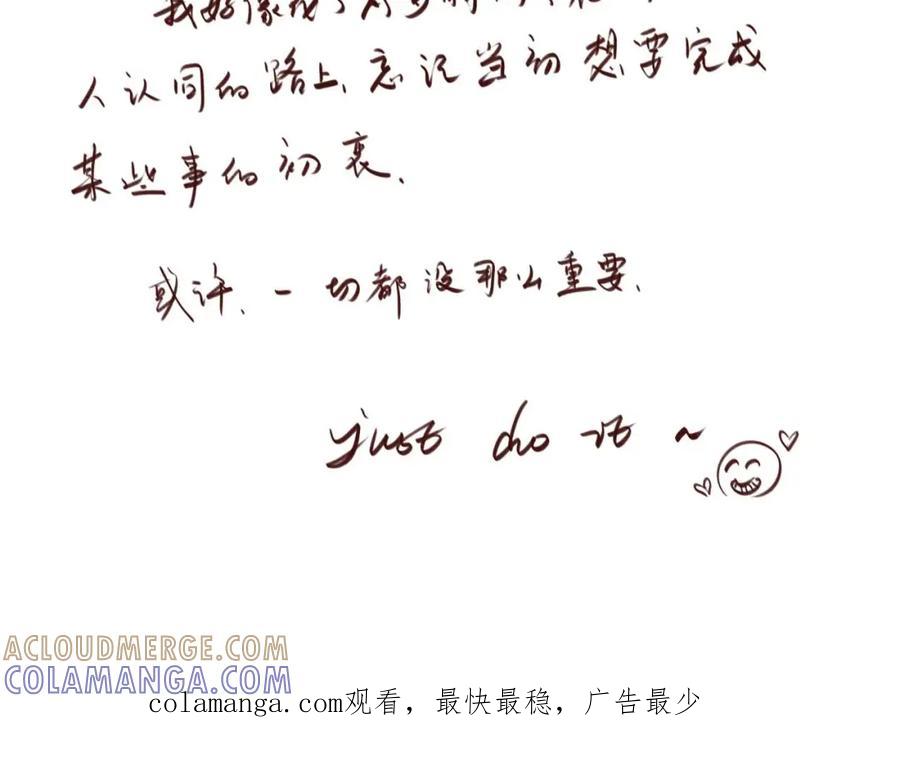 我好像成了
人认同的路上、忘记当初想要完成
某些事的初衷.
或许.一切都没那么重要.
just do it ~
ACLOUDMERGE.COM
COLAMANGA.COM
colamanga.com观看，最快最稳，广告最少